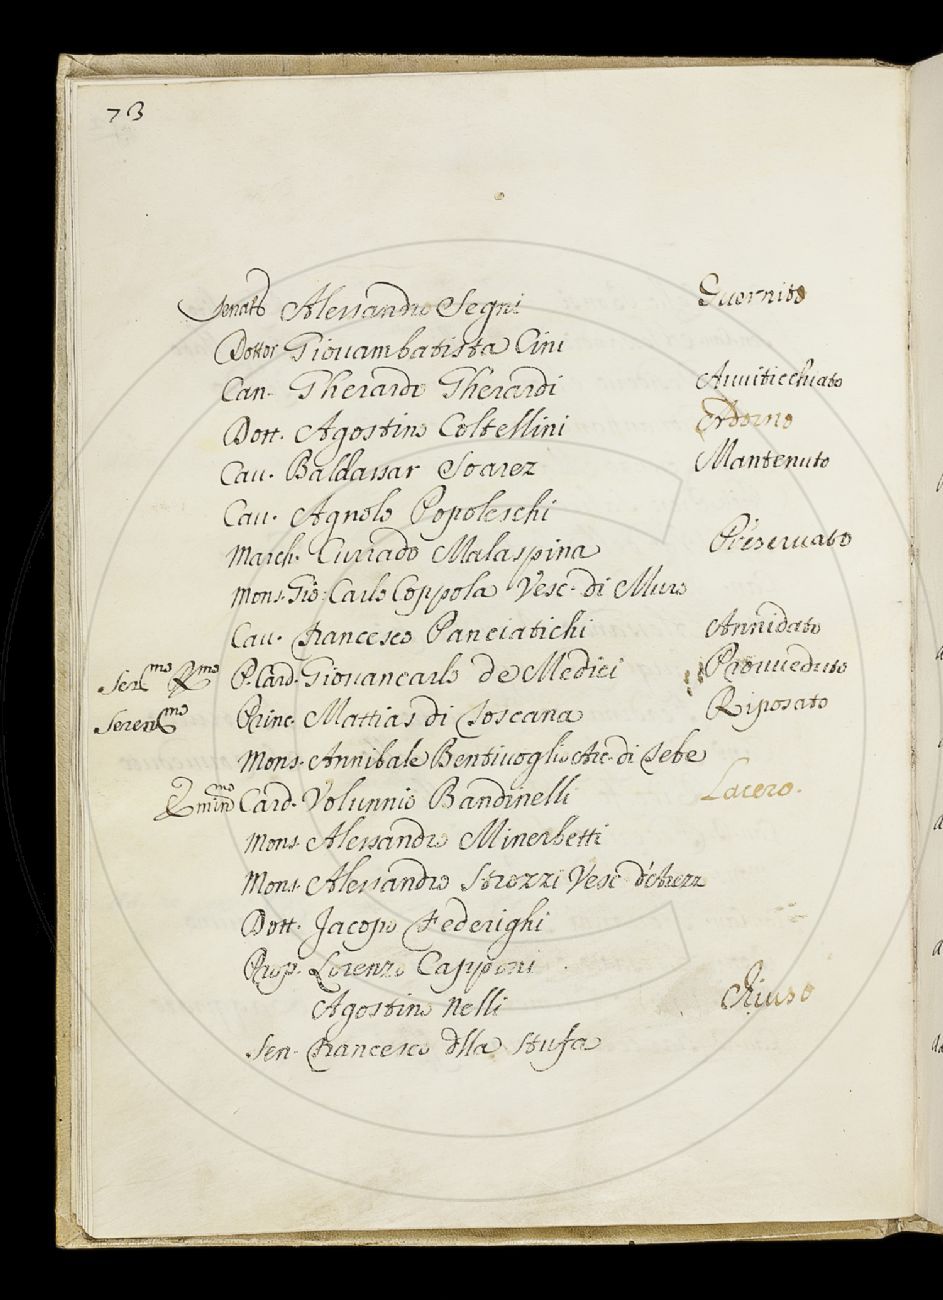 73
Senat.o Alessandro Segni Guernito
Dottor Giouambatista Cini
Can. Gherardo Gherardi Auuiticchiato
Dott. Agostino Coltellini
Cau. Baldassar Soarez Mantenuto
Cau. Agnolo Popoleschi
March. Currado Malaspina Preseruato
Mons. Gio: Carlo Coppola Vesc. di Muro
Cau. Francesco Panciatichi Annidato
Ser.mo R.mo P. Card. Giouancarlo de Medici Prouueduto
Seren.mo Princ. Mattias di Toscana Riposato
Mons. Annibale Bentiuoglio Arc. di Tebe
Card. Volunnio Bandinelli Lacero.
Mons. Alessandro Minerbetti
Mons. Alessandro Strozzi Vesc. d'Arezz
Dott. Jacopo Federighi
Prop. Lorenzo Capponi
Agostino Nelli Chiuso
Sen. Francesco dlla Stufa